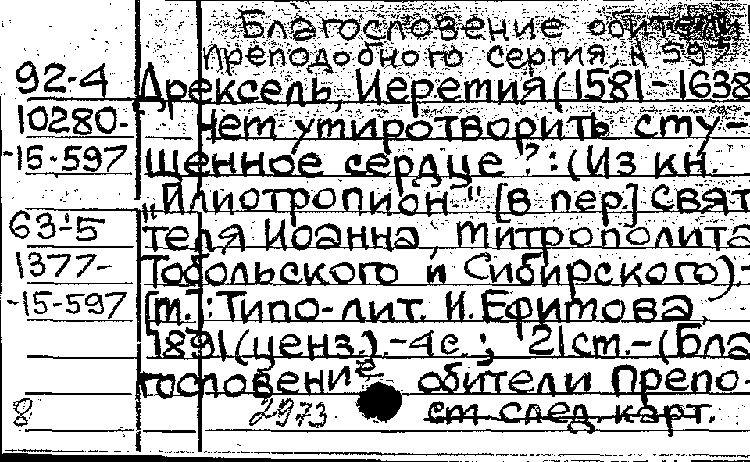 Благословение обители
преподобного сергия; к 597
92-4 Дрексель, Иеремия (1581-1638
10280- Чем умиротворить сму-
-15-597 щенное сердце?: (Из кн.
„Илиотропион-" [в пер.] свят
63-5 теля Иоанна, митрополита
1377- Тобольского и Сибирского).-
-15-597 [м.]: Типо-лит. И. Ефимова,
1891 (ценз.).-4с.; 21см.-(Бла
гословение обители Препо-
8 2973 см след. карт.